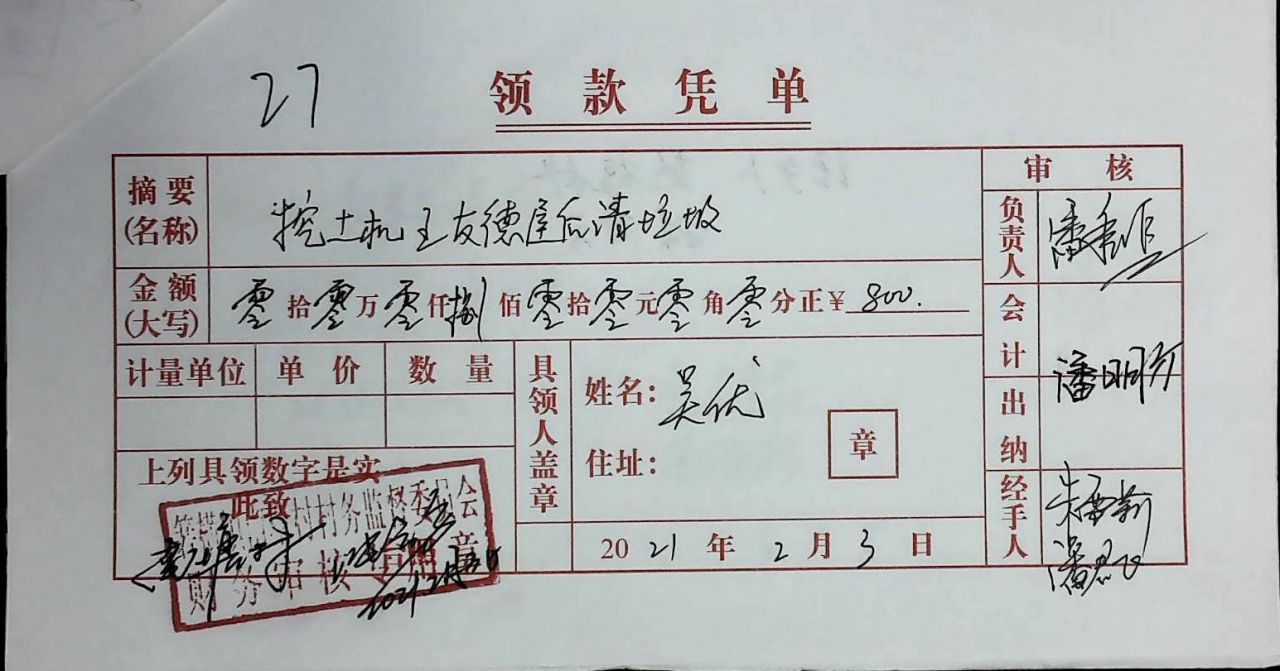 27
领款凭单
摘要
(名称)
挖土机王友德屋后清垃圾
审核
负责人
金额
(大写)
零拾零万零仟捌佰零拾零元零角零分正¥800.
会计
潘明方
计量单位 单价 数量
具领人盖章
姓名：吴优
住址：
章
出纳
上列具领数字是实
此致
经手人
2021年2月3日
村村务监督委员会
财务审核专用章